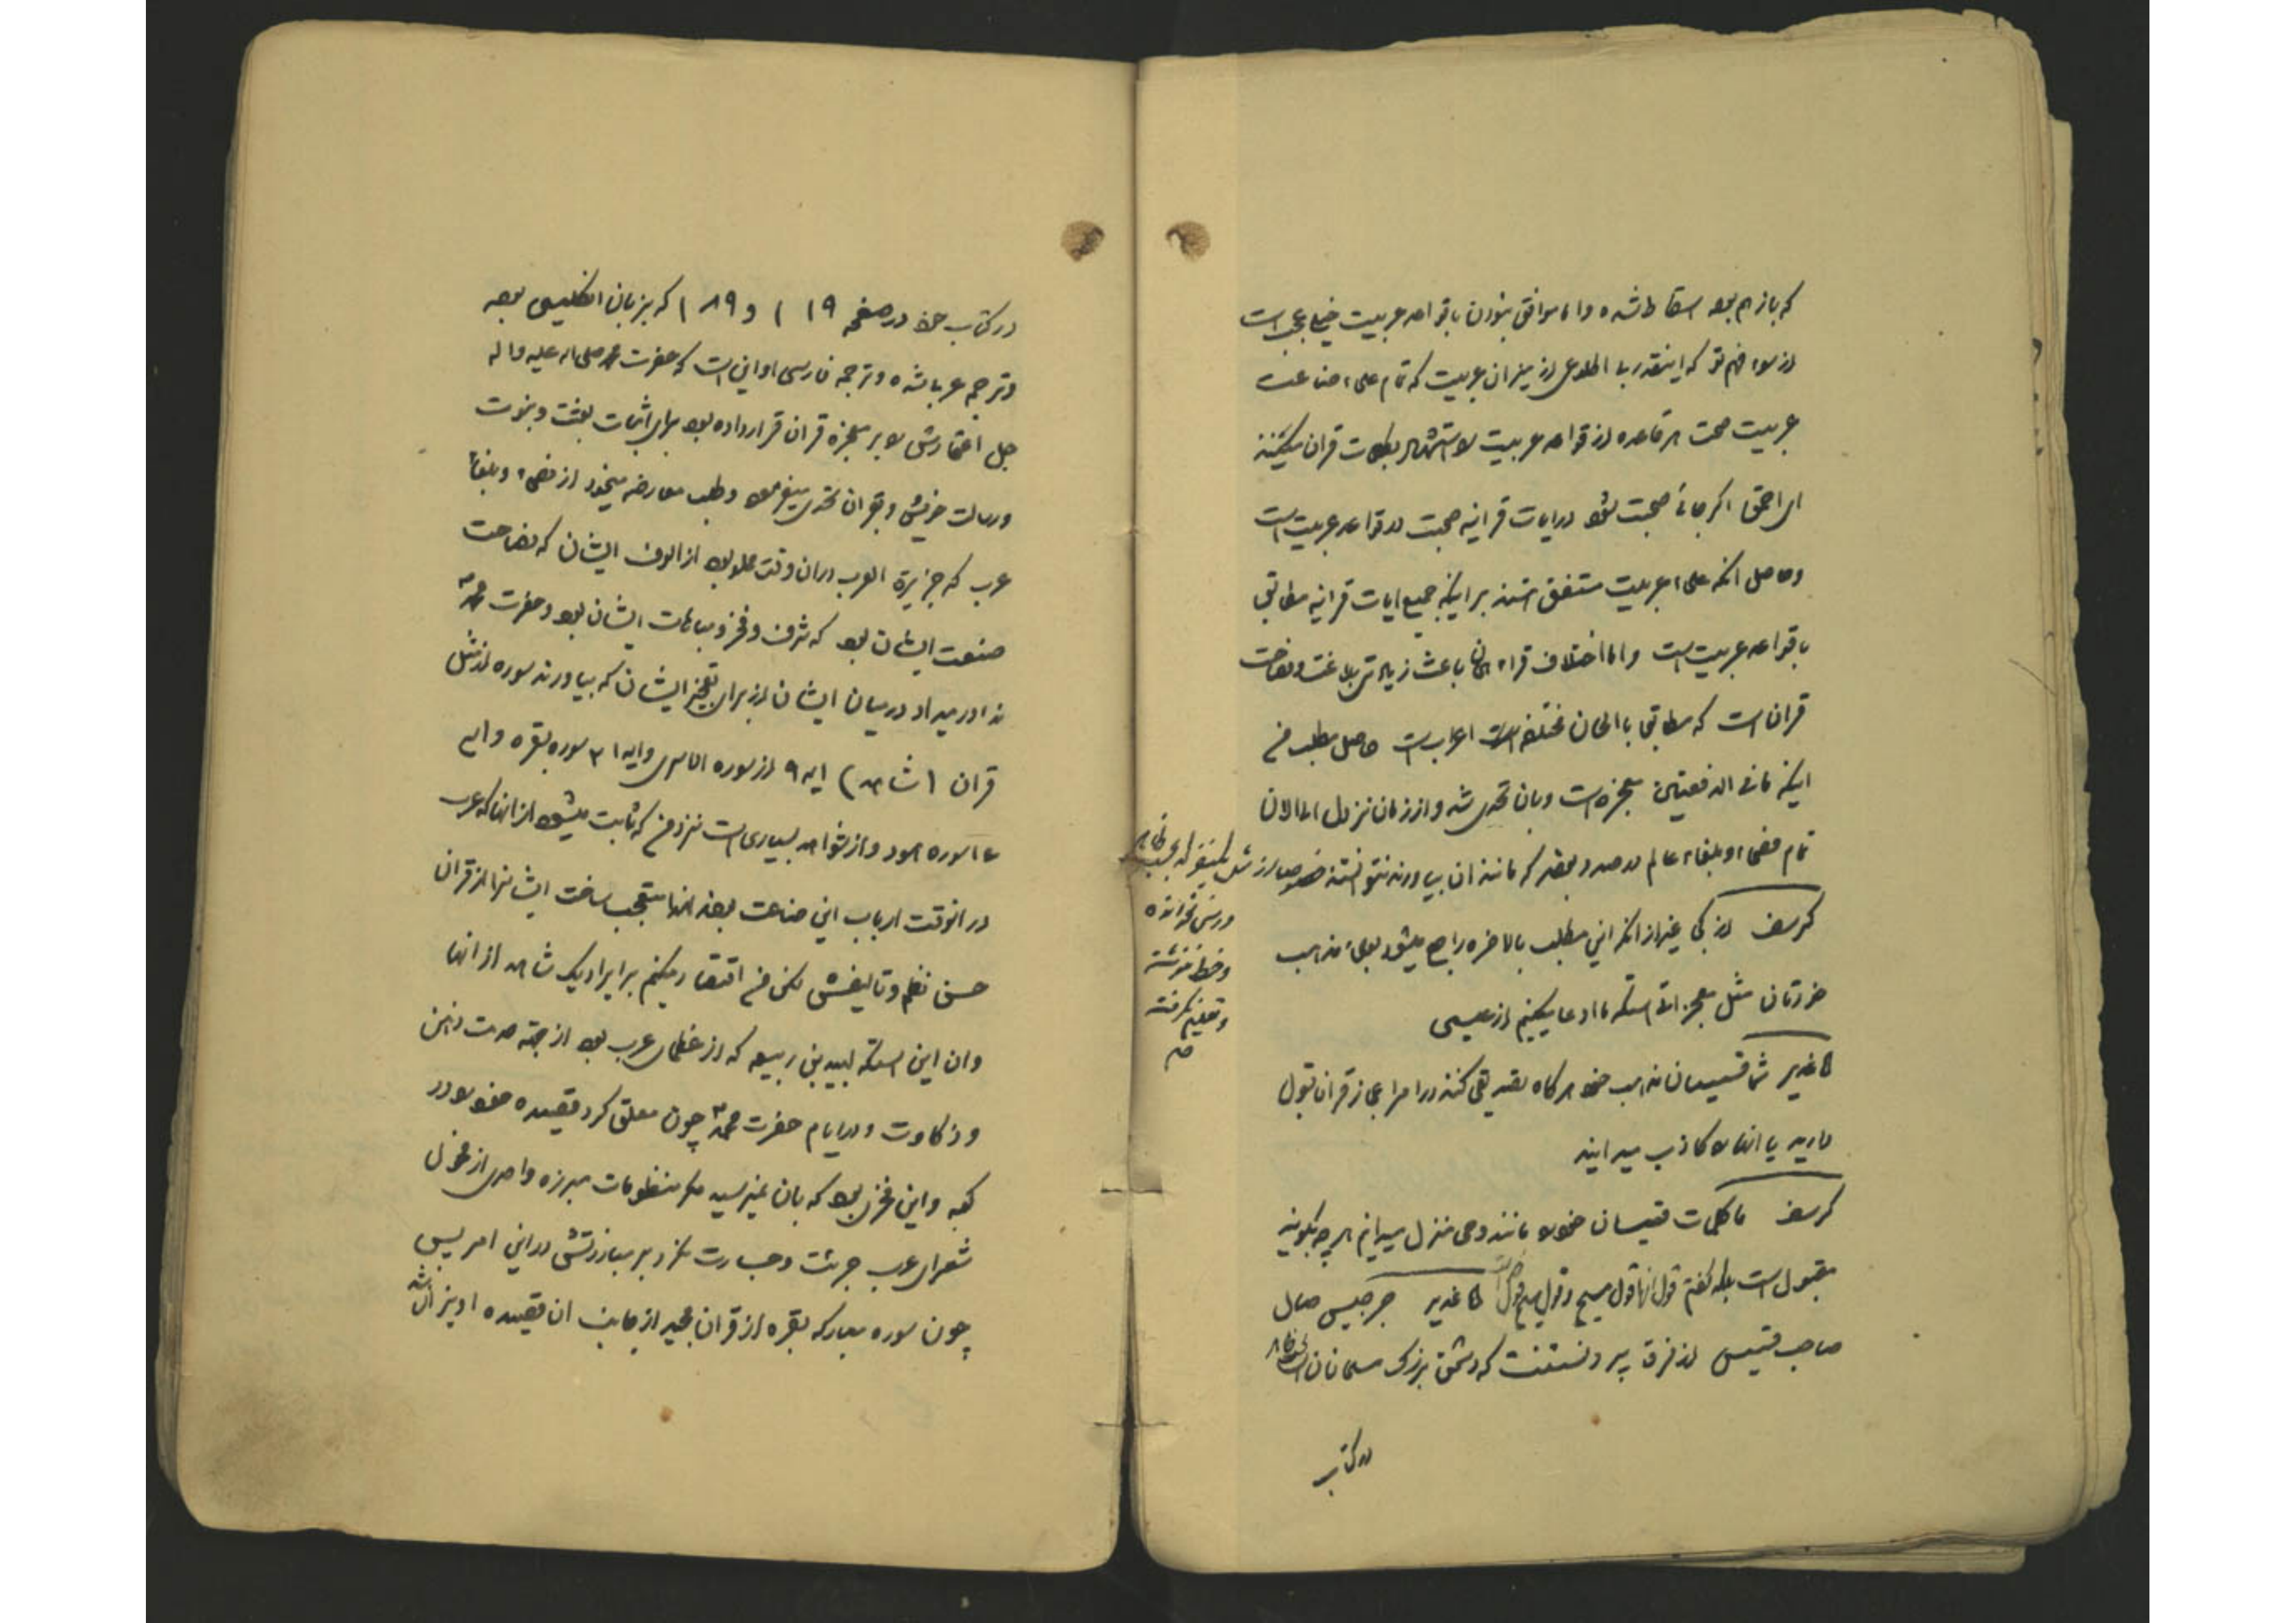 که باز هم بود اسقاط شده و اما موافق نبودن با قواعد عربیت خیلی عجب است
از سوء فهم تو که اینقدر با اطلاعی از میزان عربیت که تمام علماء صناعت
عربیت صحت هر قاعده از قواعد عربیت را استشهاد بکلمات قران میکنند
ای احمق اگر جائی صحبت شود در ایات قرانیه صحبت در قواعد عربیت است
و حاصل انکه علماء عربیت متفق هستند بر اینکه جمیع ایات قرانیه مطابق
با قواعد عربیت است و اما اختلاف قراء باعث زیادتی بلاغت و فصاحت
قران است که مطابق با الحان مختلفه است اعراب است حاصل مطلب من
اینکه ما فی الدفتین معجزه است و بان تحدی شد و از زمان نزول الی الان
تمام فصحاء و بلغاء عالم در صدد بودند که مانند ان بیاورند نتوانستند خصوصا از مثل
درسی نخوانده
و خط ننوشته
و تعلیم نگرفته
کرسف از کی غیر از انکه این مطلب بالاخره راجع میشود بعلماء مذهب
خودتان مثل معجزاتی استکه ما ادعا میکنیم از عیسی
کاغذیر شما قسیسان مذهب خود هرگاه تصدیق کنند در امر اعجاز قران قبول
دارید یا انها را کاذب میدانید
کرسف ما کلمات قسیسان خود را مانند وحی منزل میدانیم هر چه بگویند
مقبول است بلکه گفتم قول انها قول مسیح و قول مسیح قول کاغذیر جرجیس صال
صاحب قسیس از فرقه پردتستنت که دشمن بزرگ مسلمانان است
در کتاب
در کتاب خود در صفحه ۱۹ ۱ و ۱۸۹ که بزبان انکلیسی بوده
و ترجمه عربی شده و ترجمه فارسی او این است که حضرت محمد صلی اله علیه و اله
جل اعتمادش را بر معجزه قران قرار داده بود برای اثبات بعثت و نبوت
و رسالت خویش و بقران تحدی میفرمود و طلب معارضه مینمود از فصحاء و بلغاء
عرب که جزیرة العرب در ان وقت مملو بود از الوف ایشان که فصاحت
صنعت ایشان بود که شرف و فخر و مباهات ایشان بود و حضرت محمد ص
ندا در میداد در میان ایشان از برای تعجیز ایشان که بیاورند سوره از مثل
قران (شاهد) ایه ۹ از سوره الاسری و ایه ۲۱ سوره بقره و ایه
۱۶ سوره هود و از شواهد بسیاری است نزد من که ثابت میشود از انها که عرب
در انوقت ارباب این صناعت بودند انها متعجب ساخت ایشانرا از قران
حسن نظم و تالیفش لکن من اقتصار میکنم بر ایراد یک شاهد از انها
و ان این استکه لبید بن ربیعه که از عظمای عرب بود از جهة حدت ذهن
و ذکاوت و در ایام حضرت محمد ص چون معلق کرد قصیده خود را در
کعبه و این فخری بود که بان نمیرسید مگر منظومات مبرزه واحدی از فحول
شعرای عرب جرئت و جسارت نکرد بر مبارزتش در این امر پس
چون سوره مبارکه بقره از قران مجید از جانب ان قصیده اویزان شد